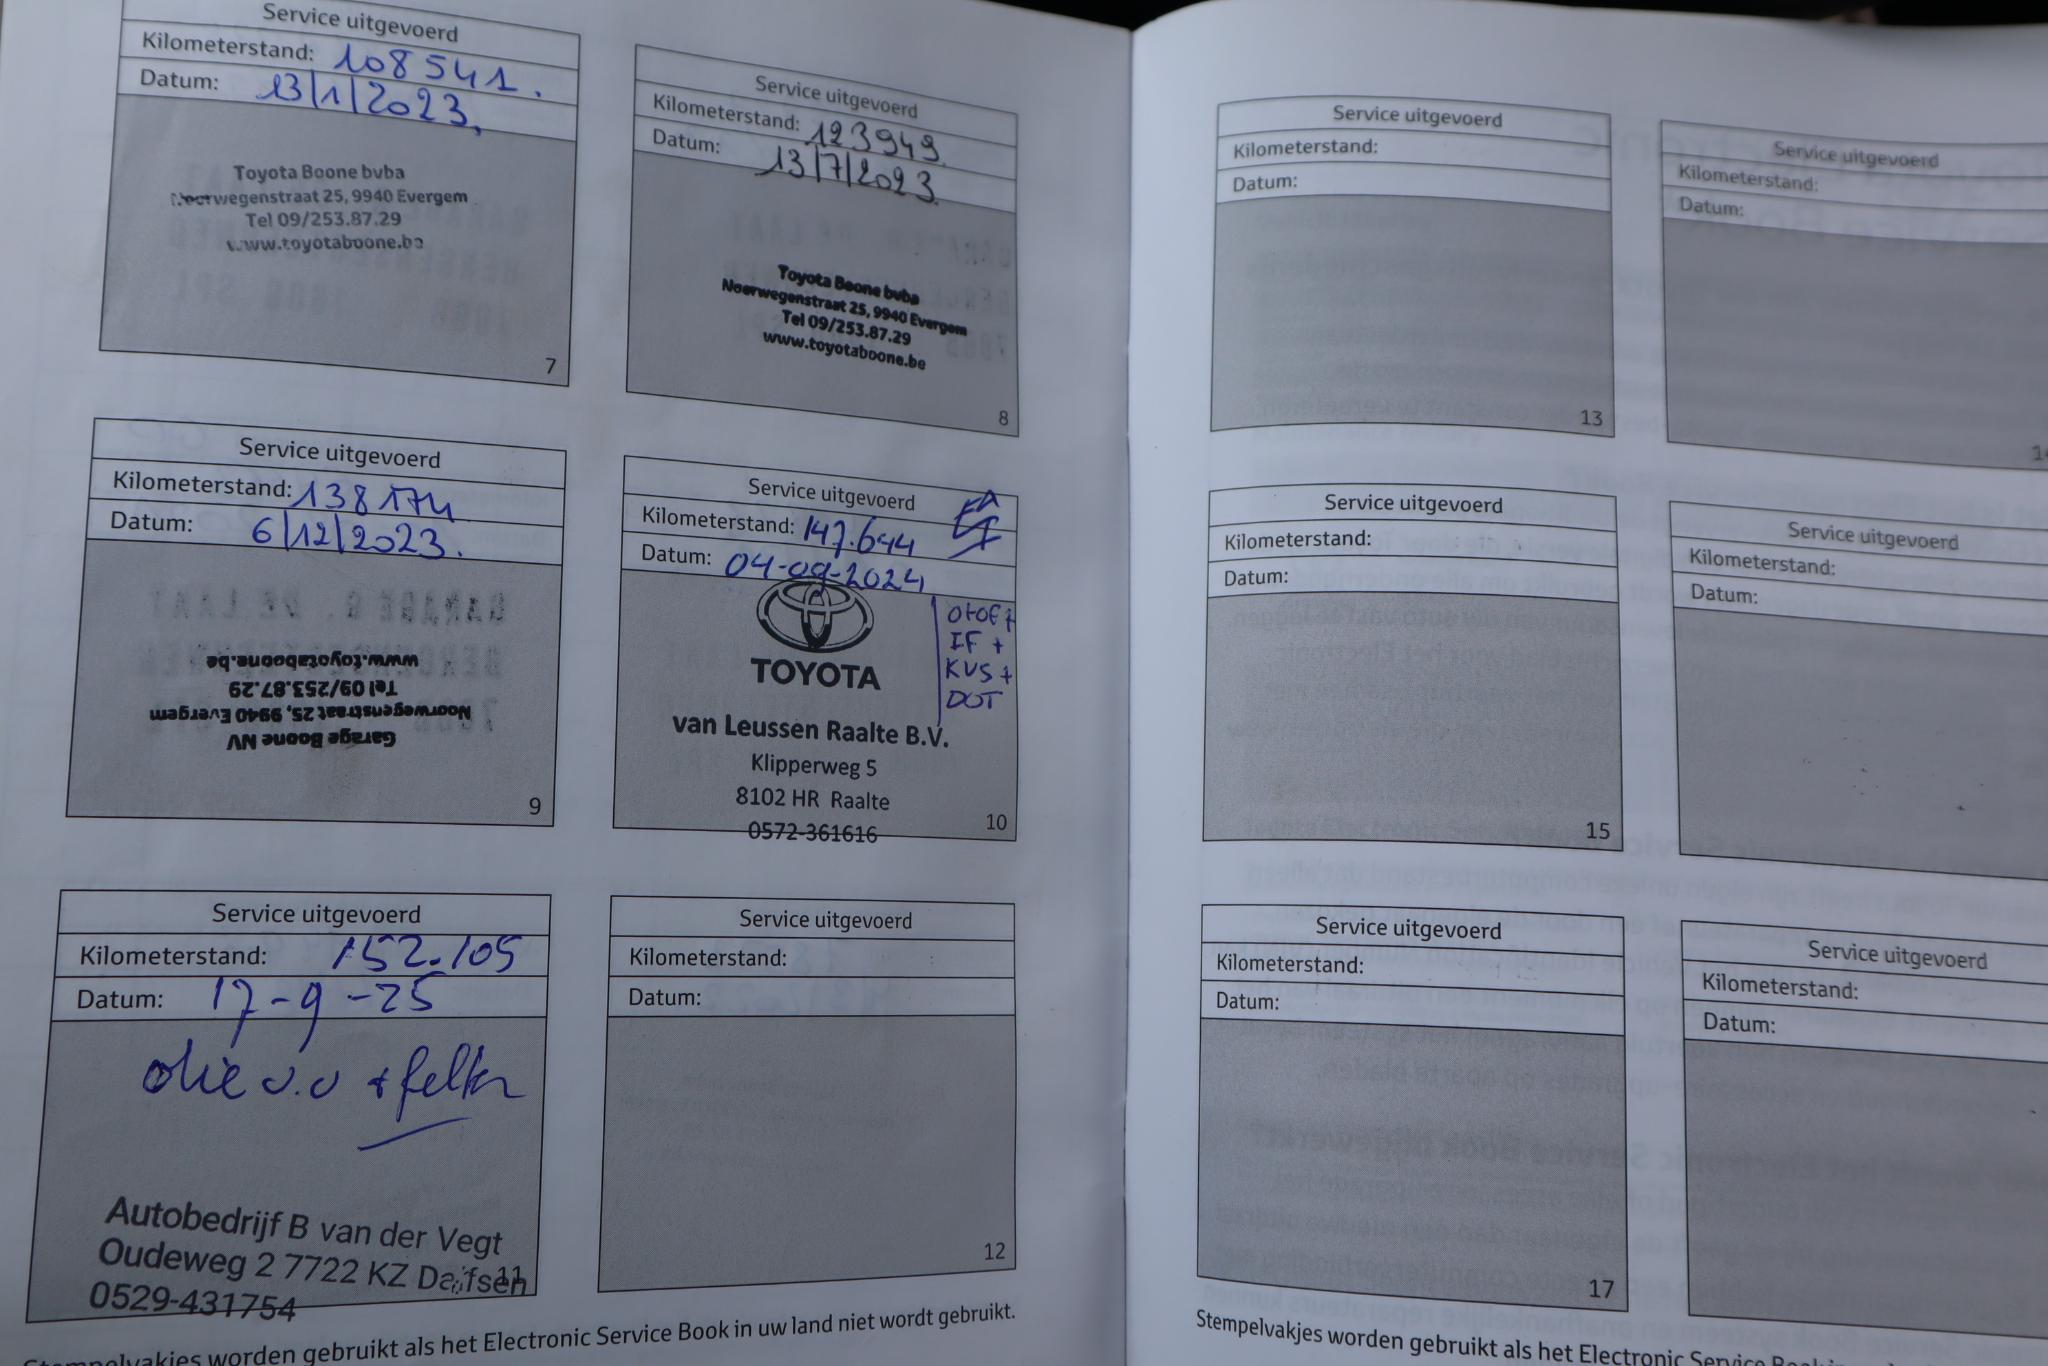 Service uitgevoerd
Kilometerstand: 108541.
Datum: 13/1/2023,
Toyota Boone bvba
Noorwegenstraat 25, 9940 Evergem
Tel 09/253.87.29
www.toyotaboone.be
7
Service uitgevoerd
Kilometerstand: 123949.
Datum: 13/7/2023.
Toyota Boone bvba
Noorwegenstraat 25, 9940 Evergem
Tel 09/253.87.29
www.toyotaboone.be
8
Service uitgevoerd
Kilometerstand: 138174
Datum: 6/12/2023.
Garage Boone NV
Noorwegenstraat 25, 9940 Evergem
Tel 09/253.87.29
www.toyotaboone.be
9
Service uitgevoerd
Kilometerstand: 147.644
Datum: 04-09-2024
IF +
KVS +
DOT
TOYOTA
van Leussen Raalte B.V.
Klipperweg 5
8102 HR Raalte
0572-361616
10
Service uitgevoerd
Kilometerstand: 152.105
Datum: 17-9-25
olie v.v + filter
Autobedrijf B van der Vegt
Oudeweg 2 7722 KZ Dalfsen
0529-431754
11
Service uitgevoerd
Kilometerstand:
Datum:
12
Stempelvakjes worden gebruikt als het Electronic Service Book in uw land niet wordt gebruikt.
Service uitgevoerd
Kilometerstand:
Datum:
13
Service uitgevoerd
Kilometerstand:
Datum:
Service uitgevoerd
Kilometerstand:
Datum:
15
Service uitgevoerd
Kilometerstand:
Datum:
Service uitgevoerd
Kilometerstand:
Datum:
17
Service uitgevoerd
Kilometerstand:
Datum:
Stempelvakjes worden gebruikt als het Electronic Service Book